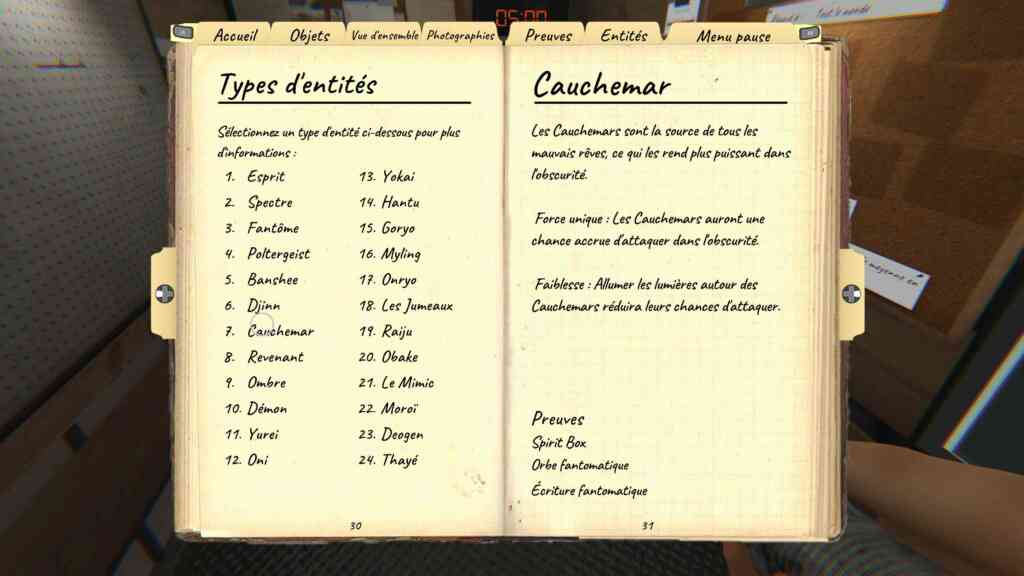 05:00
Tout le monde
Accueil
Objets
Vue d'ensemble
Photographies
Preuves
Entités
Menu pause
Types d'entités
Sélectionnez un type d'entité ci-dessous pour plus
d'informations :
1. Esprit
2. Spectre
3. Fantôme
4. Poltergeist
5. Banshee
6. Djinn
7. Cauchemar
8. Revenant
9. Ombre
10. Démon
11. Yurei
12. Oni
13. Yokai
14. Hantu
15. Goryo
16. Myling
17. Onryo
18. Les Jumeaux
19. Raiju
20. Obake
21. Le Mimic
22. Moroï
23. Deogen
24. Thayé
30
Cauchemar
Les Cauchemars sont la source de tous les
mauvais rêves, ce qui les rend plus puissant dans
l'obscurité.
Force unique : Les Cauchemars auront une
chance accrue d'attaquer dans l'obscurité.
Faiblesse : Allumer les lumières autour des
Cauchemars réduira leurs chances d'attaquer.
Preuves
Spirit Box
Orbe fantomatique
Écriture fantomatique
31
moyenne en